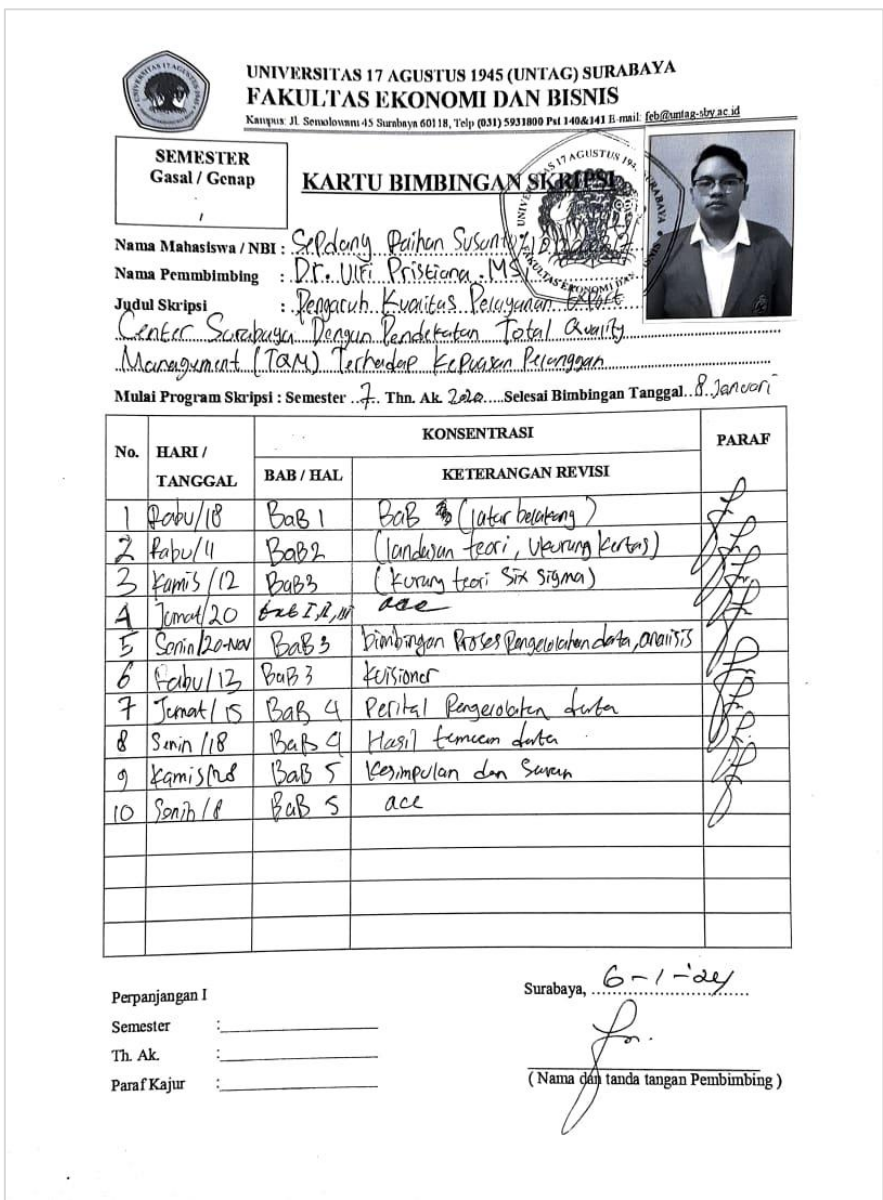 UNIVERSITAS 17 AGUSTUS 1945 (UNTAG) SURABAYA
FAKULTAS EKONOMI DAN BISNIS
Kampus: Jl. Semolowaru 45 Surabaya 60118, Telp (031) 5931800 Pst 140&141 E-mail: feb@untag-sby.ac.id
SEMESTER
Gasal / Genap
/
KARTU BIMBINGAN SKRIPSI
Nama Mahasiswa / NBI : Sepdang Raihan Susanto
Nama Pemmbimbing : Dr. Ulfi Pristiana .MSi
Judul Skripsi : Pengaruh Kualitas Pelayanan Export
Center Surabaya Dengan Pendekatan Total Quality
Management (TQM) Terhadap Kepuasan Pelanggan
Mulai Program Skripsi : Semester ..7.. Thn. Ak. 2020.....Selesai Bimbingan Tanggal..8 Januari
No. HARI / TANGGAL KONSENTRASI PARAF
BAB / HAL KETERANGAN REVISI
1 Rabu/18 BaB 1 BaB (latar belakang)
2 Rabu/11 BaB2 (landasan teori, kertas)
3 Kamis/12 BaB3 (kurang teori Six Sigma)
4 Jumat/20 bab I, II, III acc
5 Senin/20-Nov BaB 3 bimbingan Proses Pengelolahan data, analisis
6 Rabu/13 BaB3 kuisioner
7 Jumat/15 BaB 4 Pengelolaten data
8 Senin/18 BaB 4 Hasil temuan data
9 Kamis/28 BaB 5 Kesimpulan dan Saran
10 Senin/8 BaB 5 acc
Perpanjangan I
Semester :
Th. Ak. :
Paraf Kajur :
Surabaya, 6-1-'24
( Nama dan tanda tangan Pembimbing )